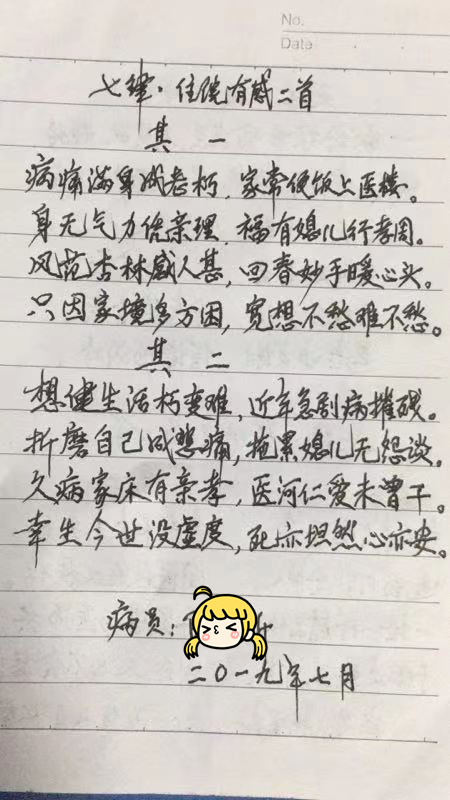 No.
Date
七律·住院有感二首
其 一
病痛满身成老朽，家常便饭上医楼。
身无气力依亲理，福有媳儿行孝周。
风范杏林感人甚，回春妙手暖心头。
只因家境多方困，宽想不愁难不愁。
其 二
想健生活朽变难，近年急剧病摧残。
折磨自己成悲痛，拖累媳儿无怨谈。
久病家床有亲孝，医河仁爱未曾干。
幸生今世没虚度，死亦坦然心亦安。
病员：
二〇一九年七月